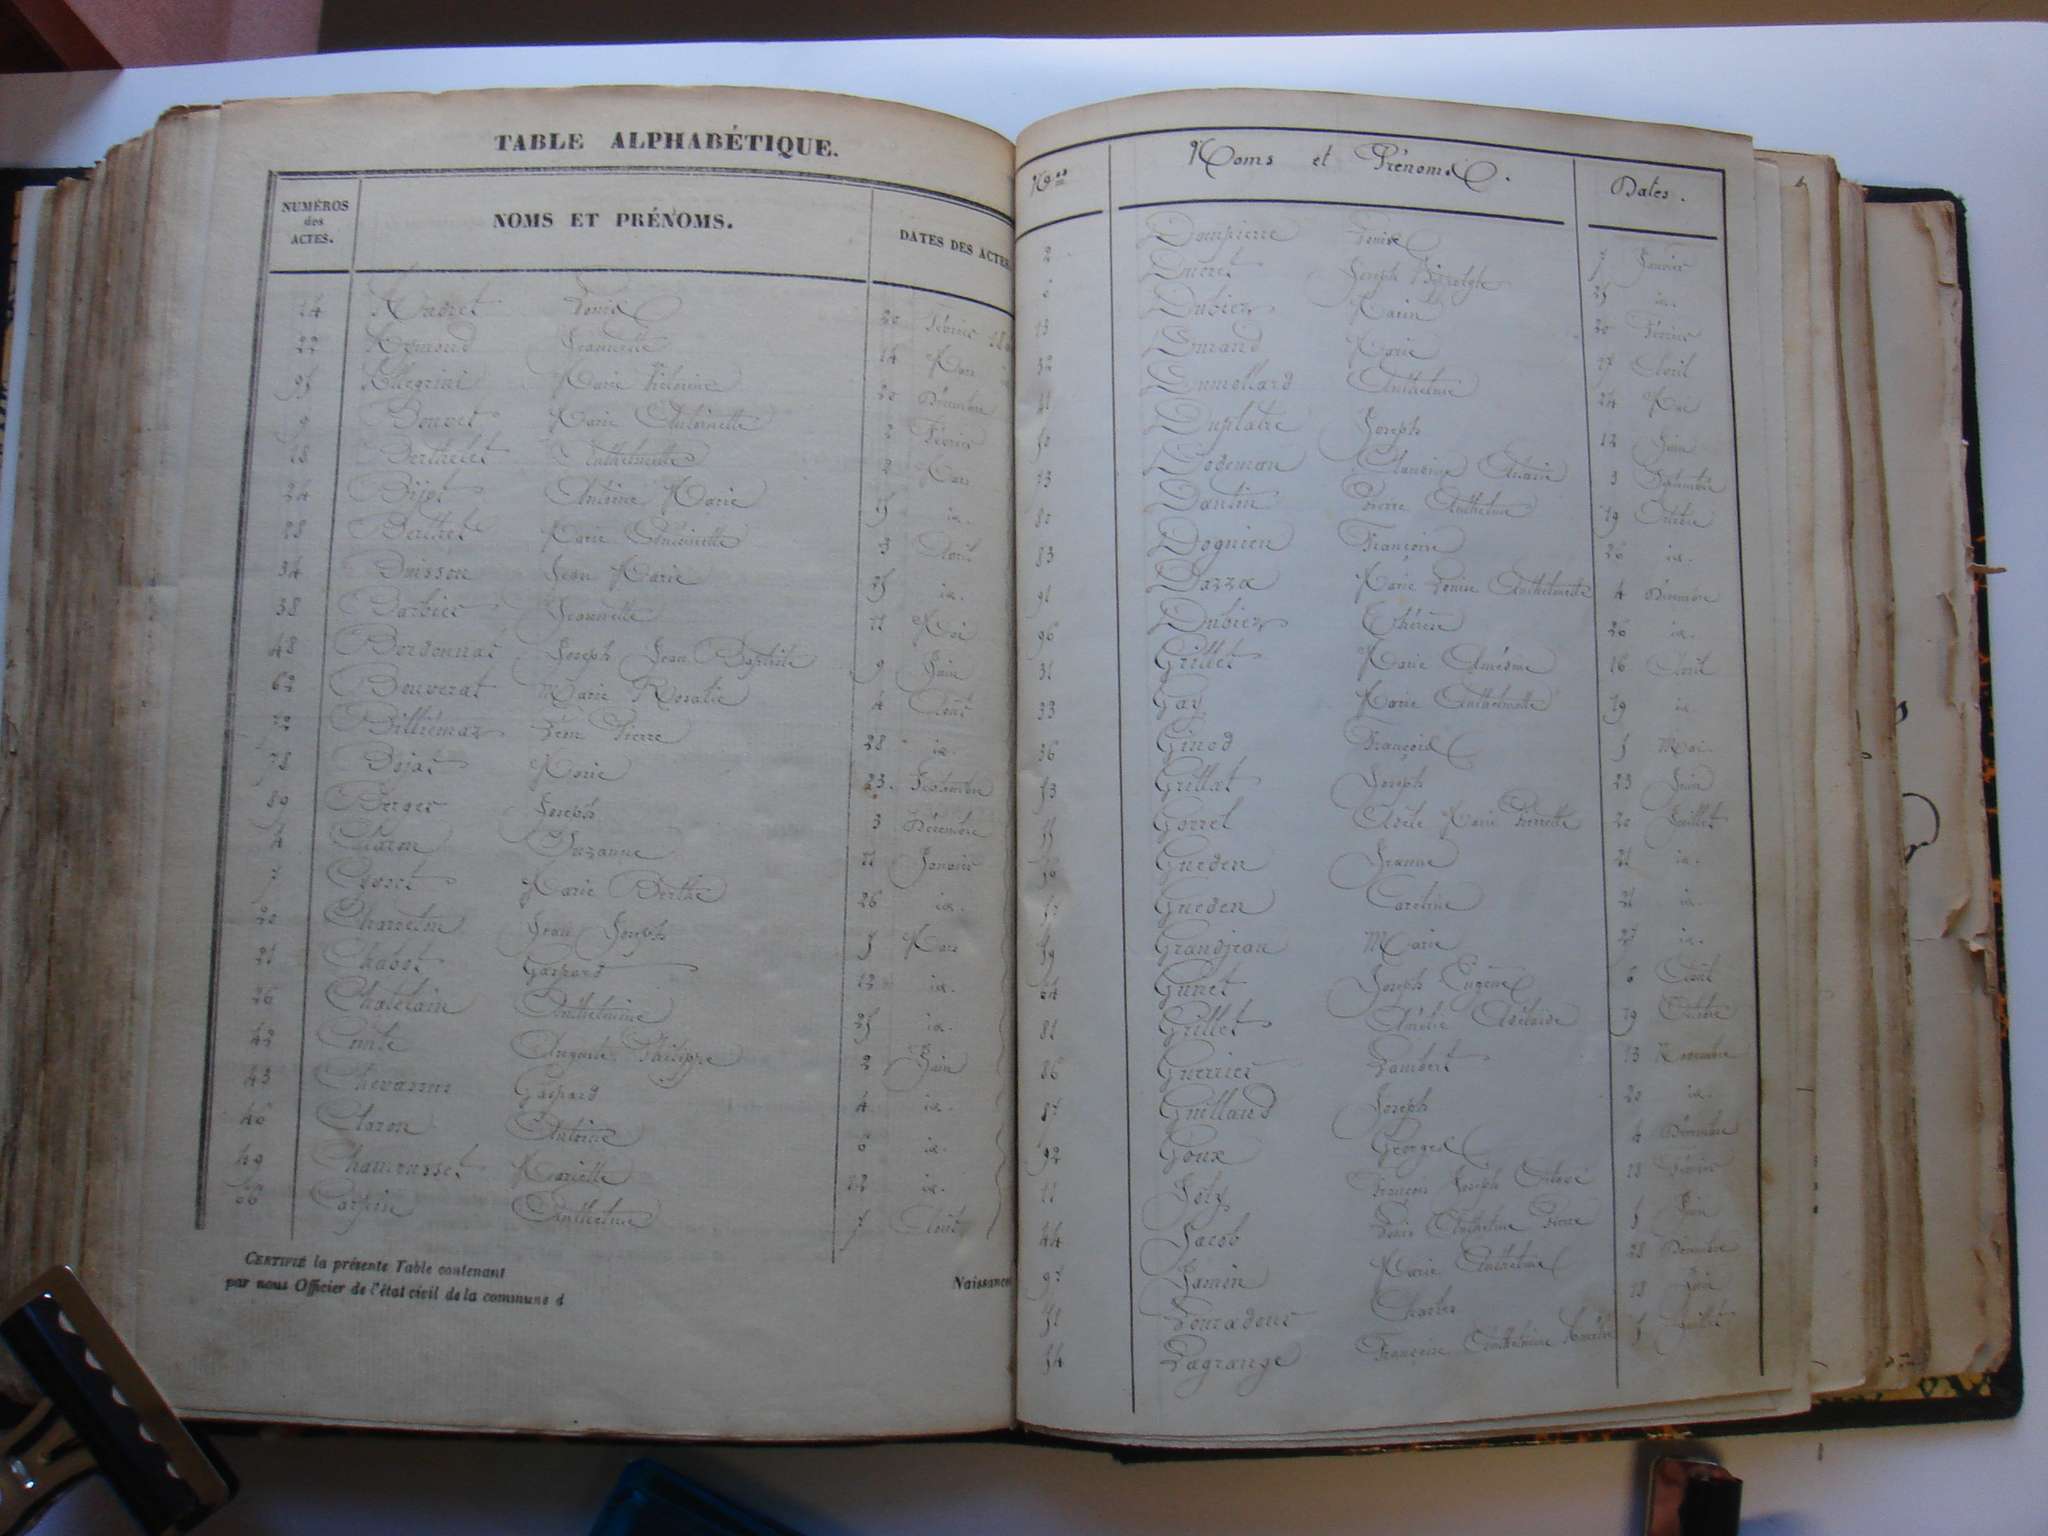 TABLE ALPHABÉTIQUE.
NUMÉROS des ACTES.
NOMS ET PRÉNOMS.
DATES DES ACTES
14 Louis 20 Février
22 Aymond Jeannette 14 Mars
95 Allegrini Marie Victorine 20 Décembre
9 Bonnet Marie Antoinette 2 Février
18 Berthelet Anthelmette 2 Mars
24 Bijot Antoine Marie 15 id.
28 Berthet Marie Antoinette 3 Avril
34 Buisson Jean Marie 25 id.
38 Barbier Jeannette 11 Mai
48 Bordonnat Joseph Jean Baptiste 9 Juin
62 Bouverat Marie Rosalie 4 Août
72 Billiémaz Léon Pierre 28 id.
78 Bojat Marie 23 Septembre
89 Berger Joseph 3 Décembre
4 Claron Suzanne 11 Janvier
7 Marie Berthe 26 id.
20 Charreton Jean Joseph 5 Mars
21 Chabot Gaspard 12 id.
26 Chatelain Anthelmine 25 id.
42 Comte Auguste Philippe 2 Juin
43 Chevassus Gaspard 4 id.
46 Claron Antoine 6 id.
49 Chamousset Mariette 12 id.
66 Carpin Anthelme 7 Août
CERTIFIÉ la présente Table contenant
Naissance
par nous Officier de l'état civil de la commune d
Nos Noms et Prénoms. Dates.
2 Dompierre Louise 7 Janvier
6 Ducret Joseph 25 id.
13 Dubiez Marin 20 Février
32 Durand Marie 17 Avril
41 Dumollard Anthelme 24 Mai
50 Duplatre Joseph 12 Juin
73 Dodeman Claudine 3 Septembre
80 Dantin Pierre Anthelme 19 Octobre
83 Dognien Françoise 26 id.
91 Dazza Marie Louise Anthelmette 4 Décembre
96 Dubiez Thérèse 26 id.
31 Grillet Marie Amésine 16 Avril
33 Gay Marie Anthelmette 19 id.
36 Ginod François 5 Mai
53 Grillat Joseph 23 Juin
55 Gorrel Adèle Marie Pierrette 20 Juillet
56 Gueden Jeanne 21 id.
57 Gueden Caroline 21 id.
59 Grandjean Marie 27 id.
64 Gunet Joseph Eugène 6 Août
81 Grillet Amélie Adélaïde 19 Octobre
86 Guerrier Lambert 13 Novembre
87 Guilland Joseph 20 id.
92 Goux Georges 4 Décembre
11 Joly François Joseph 13 Février
44 Jacob Louis Anthelme Pierre 5 Juin
97 Jamin Marie Anthelmine 28 Décembre
51 Louradour Charles 13 Juin
54 Lagrange Françoise Anthelmine Amélie 5 Juillet